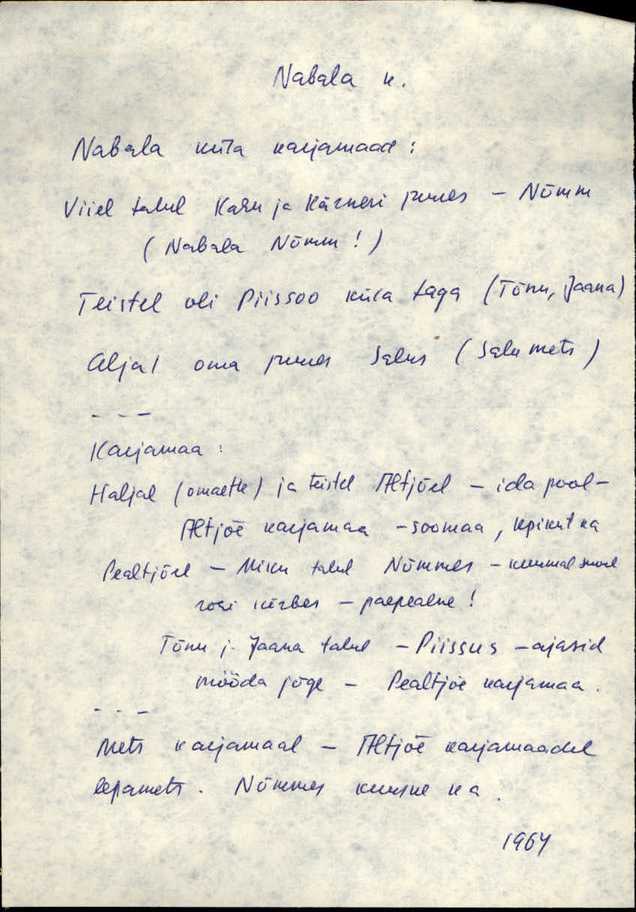 Nabala k.
Nabala küla karjamaad :
Viiel talul Karu ja Kärneri juures – Nõmm
( Nabala Nõmm ! )
Teistel oli Piissoo küla taga (Tõnu, Jaana)
Aljal oma juures Salus ( Salumets )
- - -
Karjamaa :
Haljal (omaette) ja teistel Altjõel – ida pool –
Altjõe karjamaa – soomaa, kõikut ka
Pealtjõel – Miku talul Nõmmes – kuumal
– paepealne !
Tõnu j. Jaana talul – Piissus – ajasid
mööda jõge – Pealtjõe karjamaa.
- - -
Mets karjamaal – Altjõe karjamaadel
lepamets. Nõmmes kuuske ka.
1964